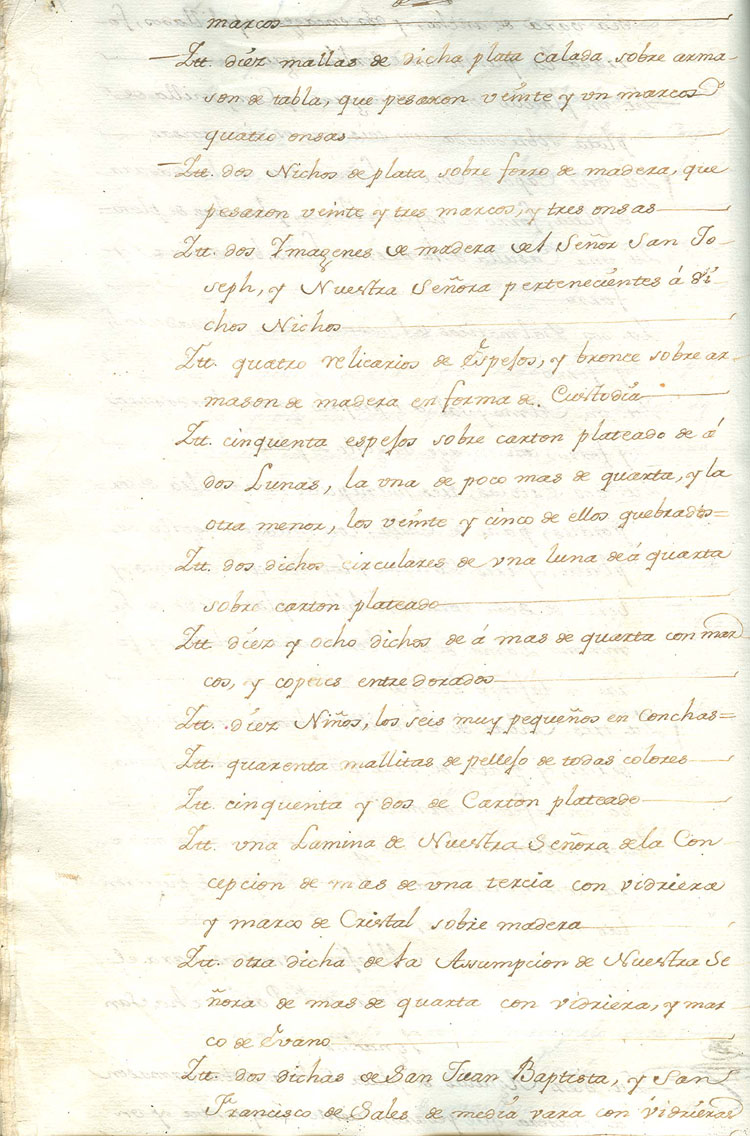 marcos
Itt. diez mallas de dicha plata calada sobre arma-
son de tabla, que pesaron veinte y vn marcos
quatro onsas
Itt. dos Nichos de plata sobre forro de madera, que
pesaron veinte y tres marcos, y tres onsas
Itt. dos Ymagenes de madera del Señor San Jo-
seph, y Nuestra Señora pertenecientes á di-
chos Nichos
Itt. quatro relicarios de Espejos, y bronce sobre ar-
mason de madera en forma de Custodia
Itt. cinquenta espejos sobre carton plateado de á
dos Lunas, la vna de poco mas de quarta, y la
otra menor, los veinte y cinco de ellos quebrados=
Itt. dos dichos circulares de vna luna de á quarta
sobre carton plateado
Itt. diez y ocho dichos de á mas de quarta con mar
cos, y copetes entredorados
Itt. diez Niños, los seis muy pequeños en Conchas=
Itt. quarenta mallitas de pellejo de todas colores
Itt. cinquenta y dos de Carton plateado
Itt. vna Lamina de Nuestra Señora de la Con
cepcion de mas de vna tercia con vidriera
y marco de Cristal sobre madera
Itt. otra dicha de la Assumpcion de Nuestra Se
ñora de mas de quarta con vidriera, y mar
co de Evano
Itt. dos dichas de San Juan Baptista, y San
Francisco de Sales de media vara con vidrieras